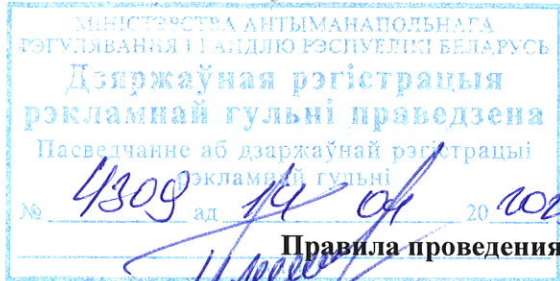 МІНІСТЭРСТВА АНТЫМАНАПОЛЬНАГА
РЭГУЛЯВАННЯ І ГАНДЛЮ РЭСПУБЛІКІ БЕЛАРУСЬ
Дзяржаўная рэгістрацыя
рэкламнай гульні праведзена
Пасведчанне аб дзяржаўнай рэгістрацыі
рэкламнай гульні
№ 4309 ад 14 04 20 202
Правила проведения